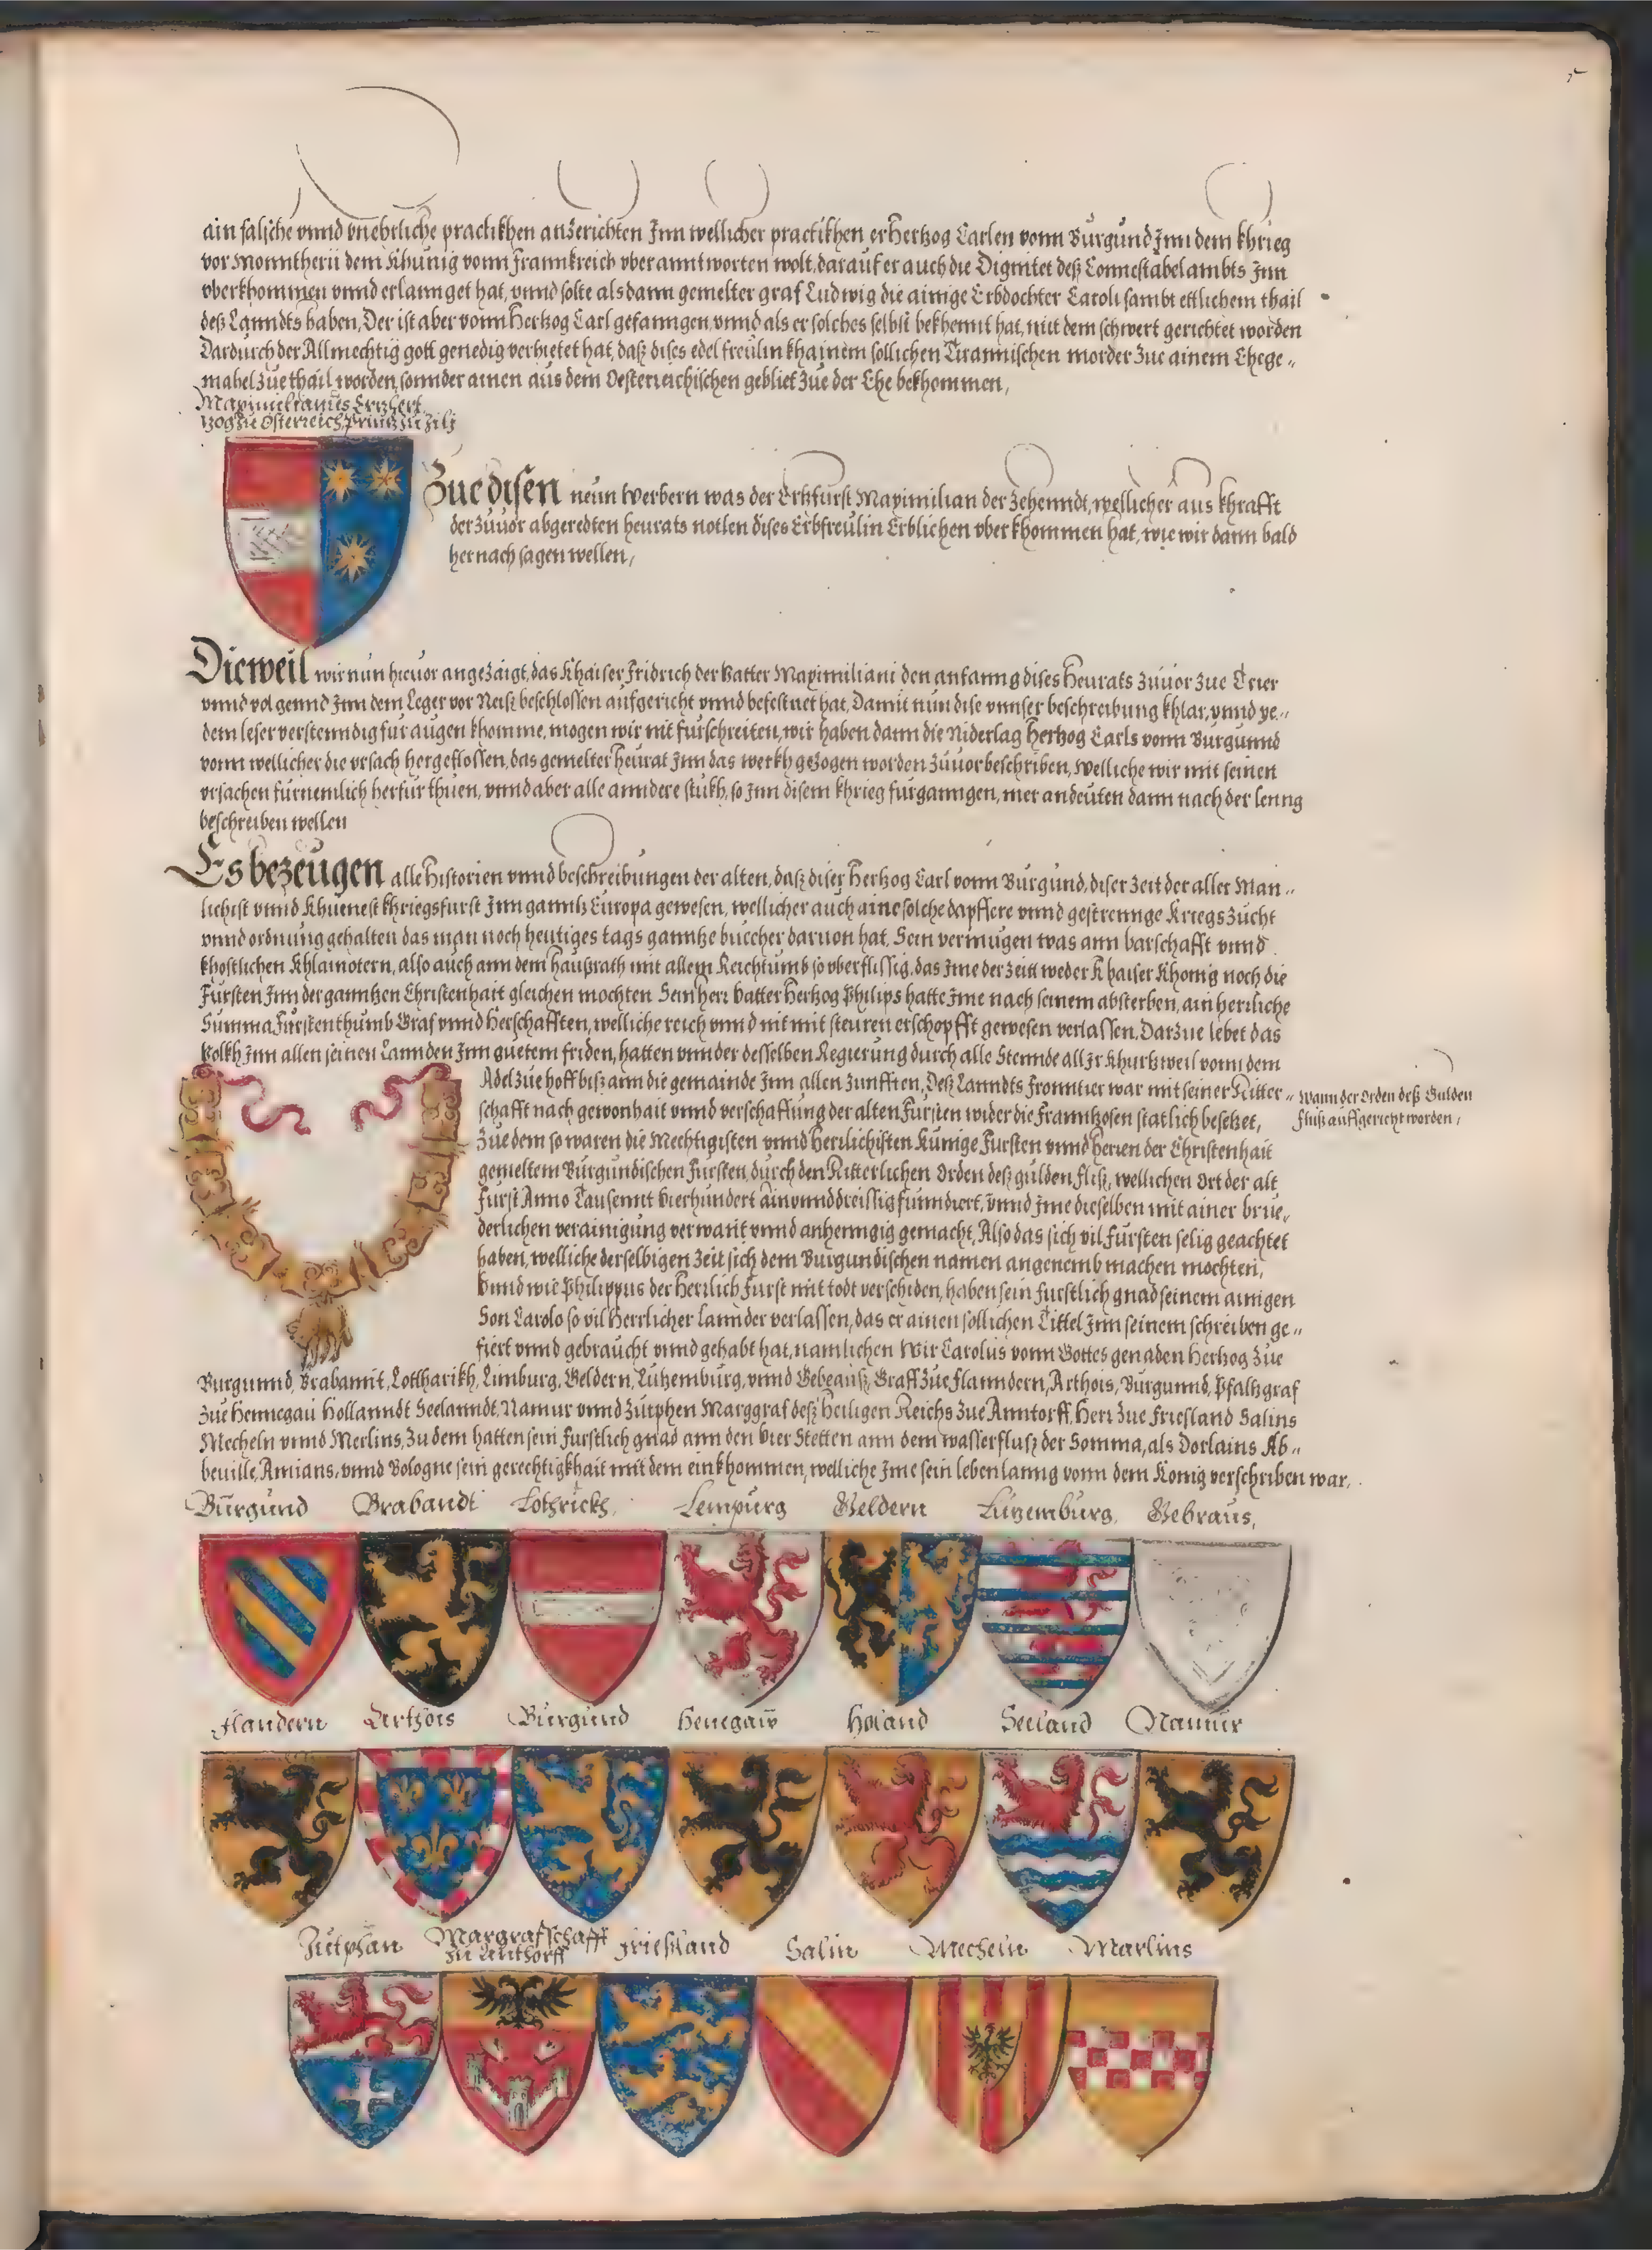 ain falsche vnnd vnehrliche practikhen anzerichten Inn wellicher practikhen er Hertzog Carlen vonn Burgund Inn dem khrieg
vor Monntherii dem Khunig vonn Frannkreich vberanntworten wolt, darauf er auch die Dignitet deß Connestabelambts Inn
vberkhommen vnnd erlannget hat, vnnd solte alsdann gemelter graf Ludwig die ainige Erbdochter Caroli sambt ettlichem thail
deß Lanndts haben, Der ist aber vonn Hertzog Carl gefanngen, vnnd als er solches selbst bekhennt hat, mit dem schwert gerichtet worden
Dardurch der Allmechtig gott genedig verhietet hat, daß dises edel freülin khainem sollichen Tirannischen morder zue ainem Ehege-
mahel zue thail worden, sonnder ainen aus dem Oesterreichischen gebliet zue der Ehe bekhommen,
Maximilianus Ertzhert
zog zu Osterreich, Printz zu Zili
Zue disen neun Werbern was der Ertzfurst Maximilian der zehenndt, wellicher aus khrafft
der zuuor abgeredten heurats notlen dises Erbfreulin Erblichen vberkhommen hat, wie wir dann bald
hernach sagen wellen,
Dieweil wir nun hieuor angezaigt, das Khaiser Fridrich der Vatter Maximiliani den anfanng dises Heurats zuuor zue Trier
vnnd volgennd Inn dem Leger vor Neiß beschlossen aufgericht vnnd befestnet hat, Damit nun dise vnnser beschreibung khlar, vnnd ye-
dem leser verstenndig fur augen khomme, mogen wir nit furschreiten, wir haben dann die Niderlag Hertzog Carls vonn Burgunnd
vonn wellicher die vrsach hergeflossen, das gemelter heurat Inn das werkh gezogen worden zuuor beschriben, Welliche wir mit seinen
vrsachen furnemlich herfur thuen, vnnd aber alle anndere stukh, so Inn disem khrieg furganngen, mer andeuten dann nach der lenng
beschreiben wellen
Es bezeugen alle Historien vnnd beschreibungen der alten, daß diser Hertzog Carl vonn Burgund, diser zeit der aller Man-
lichist vnnd Khuenest khriegsfurst Inn ganntz Europa gewesen, wellicher auch aine solche dapffere vnnd gestrennge Kriegs zucht
vnnd ordnung gehalten das man noch heutiges tags ganntze buecher daruon hat. Sein vermugen was ann barschafft vnnd
khostlichen Khlainotern, also auch ann dem Haußrath mit allem Reichtumb so vberflissig, das Ime der zeitt weder Khaiser Khonig noch die
Fursten Inn der ganntzen Christenhait gleichen mochten Sein herr vatter Hertzog Philips hatte Ime nach seinem absterben, ain herrliche
Summa Furstenthumb Graf vnnd Herschafften, welliche reich vnnd nit mit steuren erschopfft gewesen verlassen. Darzue lebet das
Volkh Inn allen seinen Lannden Inn guetem friden, hatten vnnder desselben Regierung durch alle Stennde all Ir Khurtzweil vonn dem
Adel zue hoff biß ann die gemainde Inn allen zunfften, Deß Lanndts Fronntier war mit seiner Ritter-
schafft nach gewonhait vnnd verschaffung der alten Fursten wider die Franntzosen statlich besetzet,
Wann der Orden deß Gulden
Fluß auffgericht worden,
Zue dem so waren die Mechtigisten vnnd Herrlichisten Kunige Fursten vnnd herren der Christenhait
gemeltem Burgundischen Fursten, durch den Ritterlichen Orden deß gulden fliß, wellichen Ort der alt
Furst Anno Tausennt vierhundert ainvnnddreissig funndiert, vnnd Ime dieselben mit ainer brue-
derlichen verainigung verwant vnnd anhenngig gemacht, Also das sich vil Fursten selig geachtet
haben, welliche derselbigen zeit sich dem Burgundischen namen angenemb machen mochten,
Vnnd wie Philippus der Herrlich Furst mit todt verschiden, haben sein furstlich gnad seinem ainigen
Son Carolo so vil Herrlicher Lannder verlassen, das er ainen sollichen Tittel Inn seinem schreiben ge-
fiert vnnd gebraucht vnnd gehabt hat, namlichen Wir Carolus vonn Gottes genaden Hertzog zue
Burgunnd, Brabannt, Lottharikh, Limburg, Geldern, Lutzemburg, vnnd Gebeauß, Graff zue Flanndern, Arthois, Burgunnd, Pfaltzgraf
zue Hennegau Hollanndt Seelanndt, Namur vnnd Zutphen Marggraf deß Heiligen Reichs zue Anntorff, Herr zue Friesland Salins
Mecheln vnnd Merlins, Zu dem hatten sein Furstlich gnad ann den vier Stetten ann dem wasserfluß der Somma, als Dorlains Ab-
beuille, Amians, vnnd Bologne sein gerechtigkhait mit dem einkhommen, welliche Ime sein lebenlanng vonn dem Konig verschriben war,
Burgund Brabandt Lothrickh Lempurg Geldern Lutzemburg Gebraus,
Flandern Arthois Burgund Henegaw Holand Seeland Namur
Zutphan Margrafschafft zu Anthorff Frießland Salin Mecheln Marlins